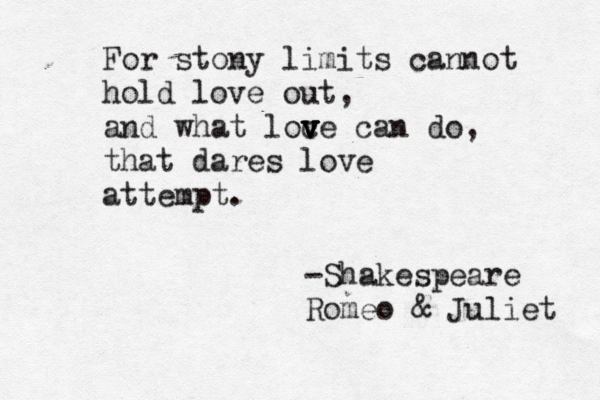 For stony limits cannot
hold love out,
and what love can do,
that dares love
attempt.
-Shakespeare
Romeo & Juliet